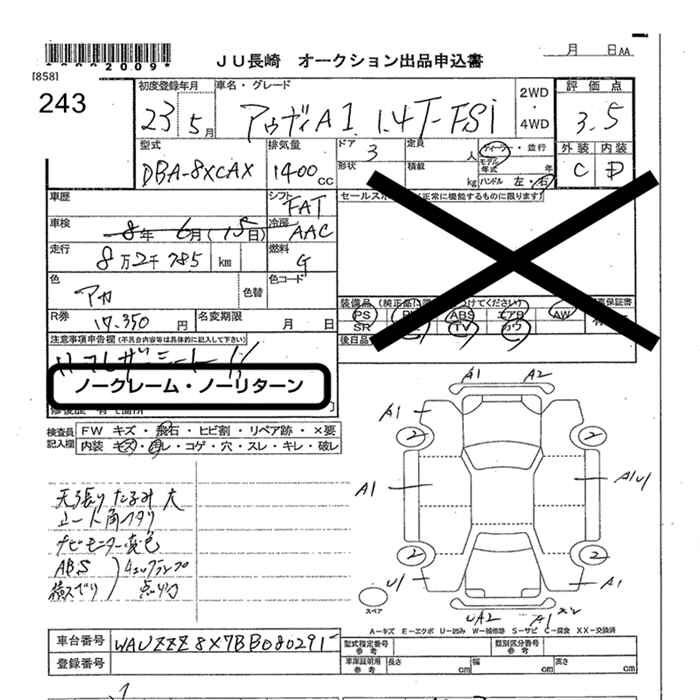 月 日AA
****2009*
JU長崎 オークション出品申込書
[858]
243
初度登録年月 車名・グレード 2WD・4WD 評価点
23 5月 アウディA1 1.4T-FSi 3.5
型式 排気量 ドア 3 定員 人 ディーラー・並行 外装 内装
DBA-8XCAX 1400cc 形状 積載 kg モデル年式 年 ハンドル 左・右 C D
車歴 シフト FAT セールスポ (正常に機能するものに限ります)
車検 8年 6月(15日) 冷房 AAC
走行 8万2千785 km 燃料 G
色 アカ 色替 色コード
装備品(純正品に つけてください) 保証書
R券 17.350円 名変期限 月 日
PS ABS エアB AW
SR TV カワ
注意事項申告欄(不具合内容等は具体的に記入して下さい) 後日品
ノークレーム・ノーリターン
検査員記入欄 FW キズ・飛石・ヒビ割・リペア跡・×要
内装 キズ・汚レ・コゲ・穴・スレ・キレ・破レ
A1 A2
A1
2 2
天張りたるみ大
A1 A1U1
シート角スリ
ナビモニター変色
2 2
ABS チェックランプ
横スベリ 点灯
U1 A1
スペア
UA2 A1
A-キズ E-エクボ U-凹み W-補修跡 S-サビ C-腐食 XX-交換済
車台番号 WAUZZZ8X7BB080291
型式指定番号 参考 類別区分番号 参考
登録番号
車庫証明用 参考 長さ cm 幅 cm 高さ cm